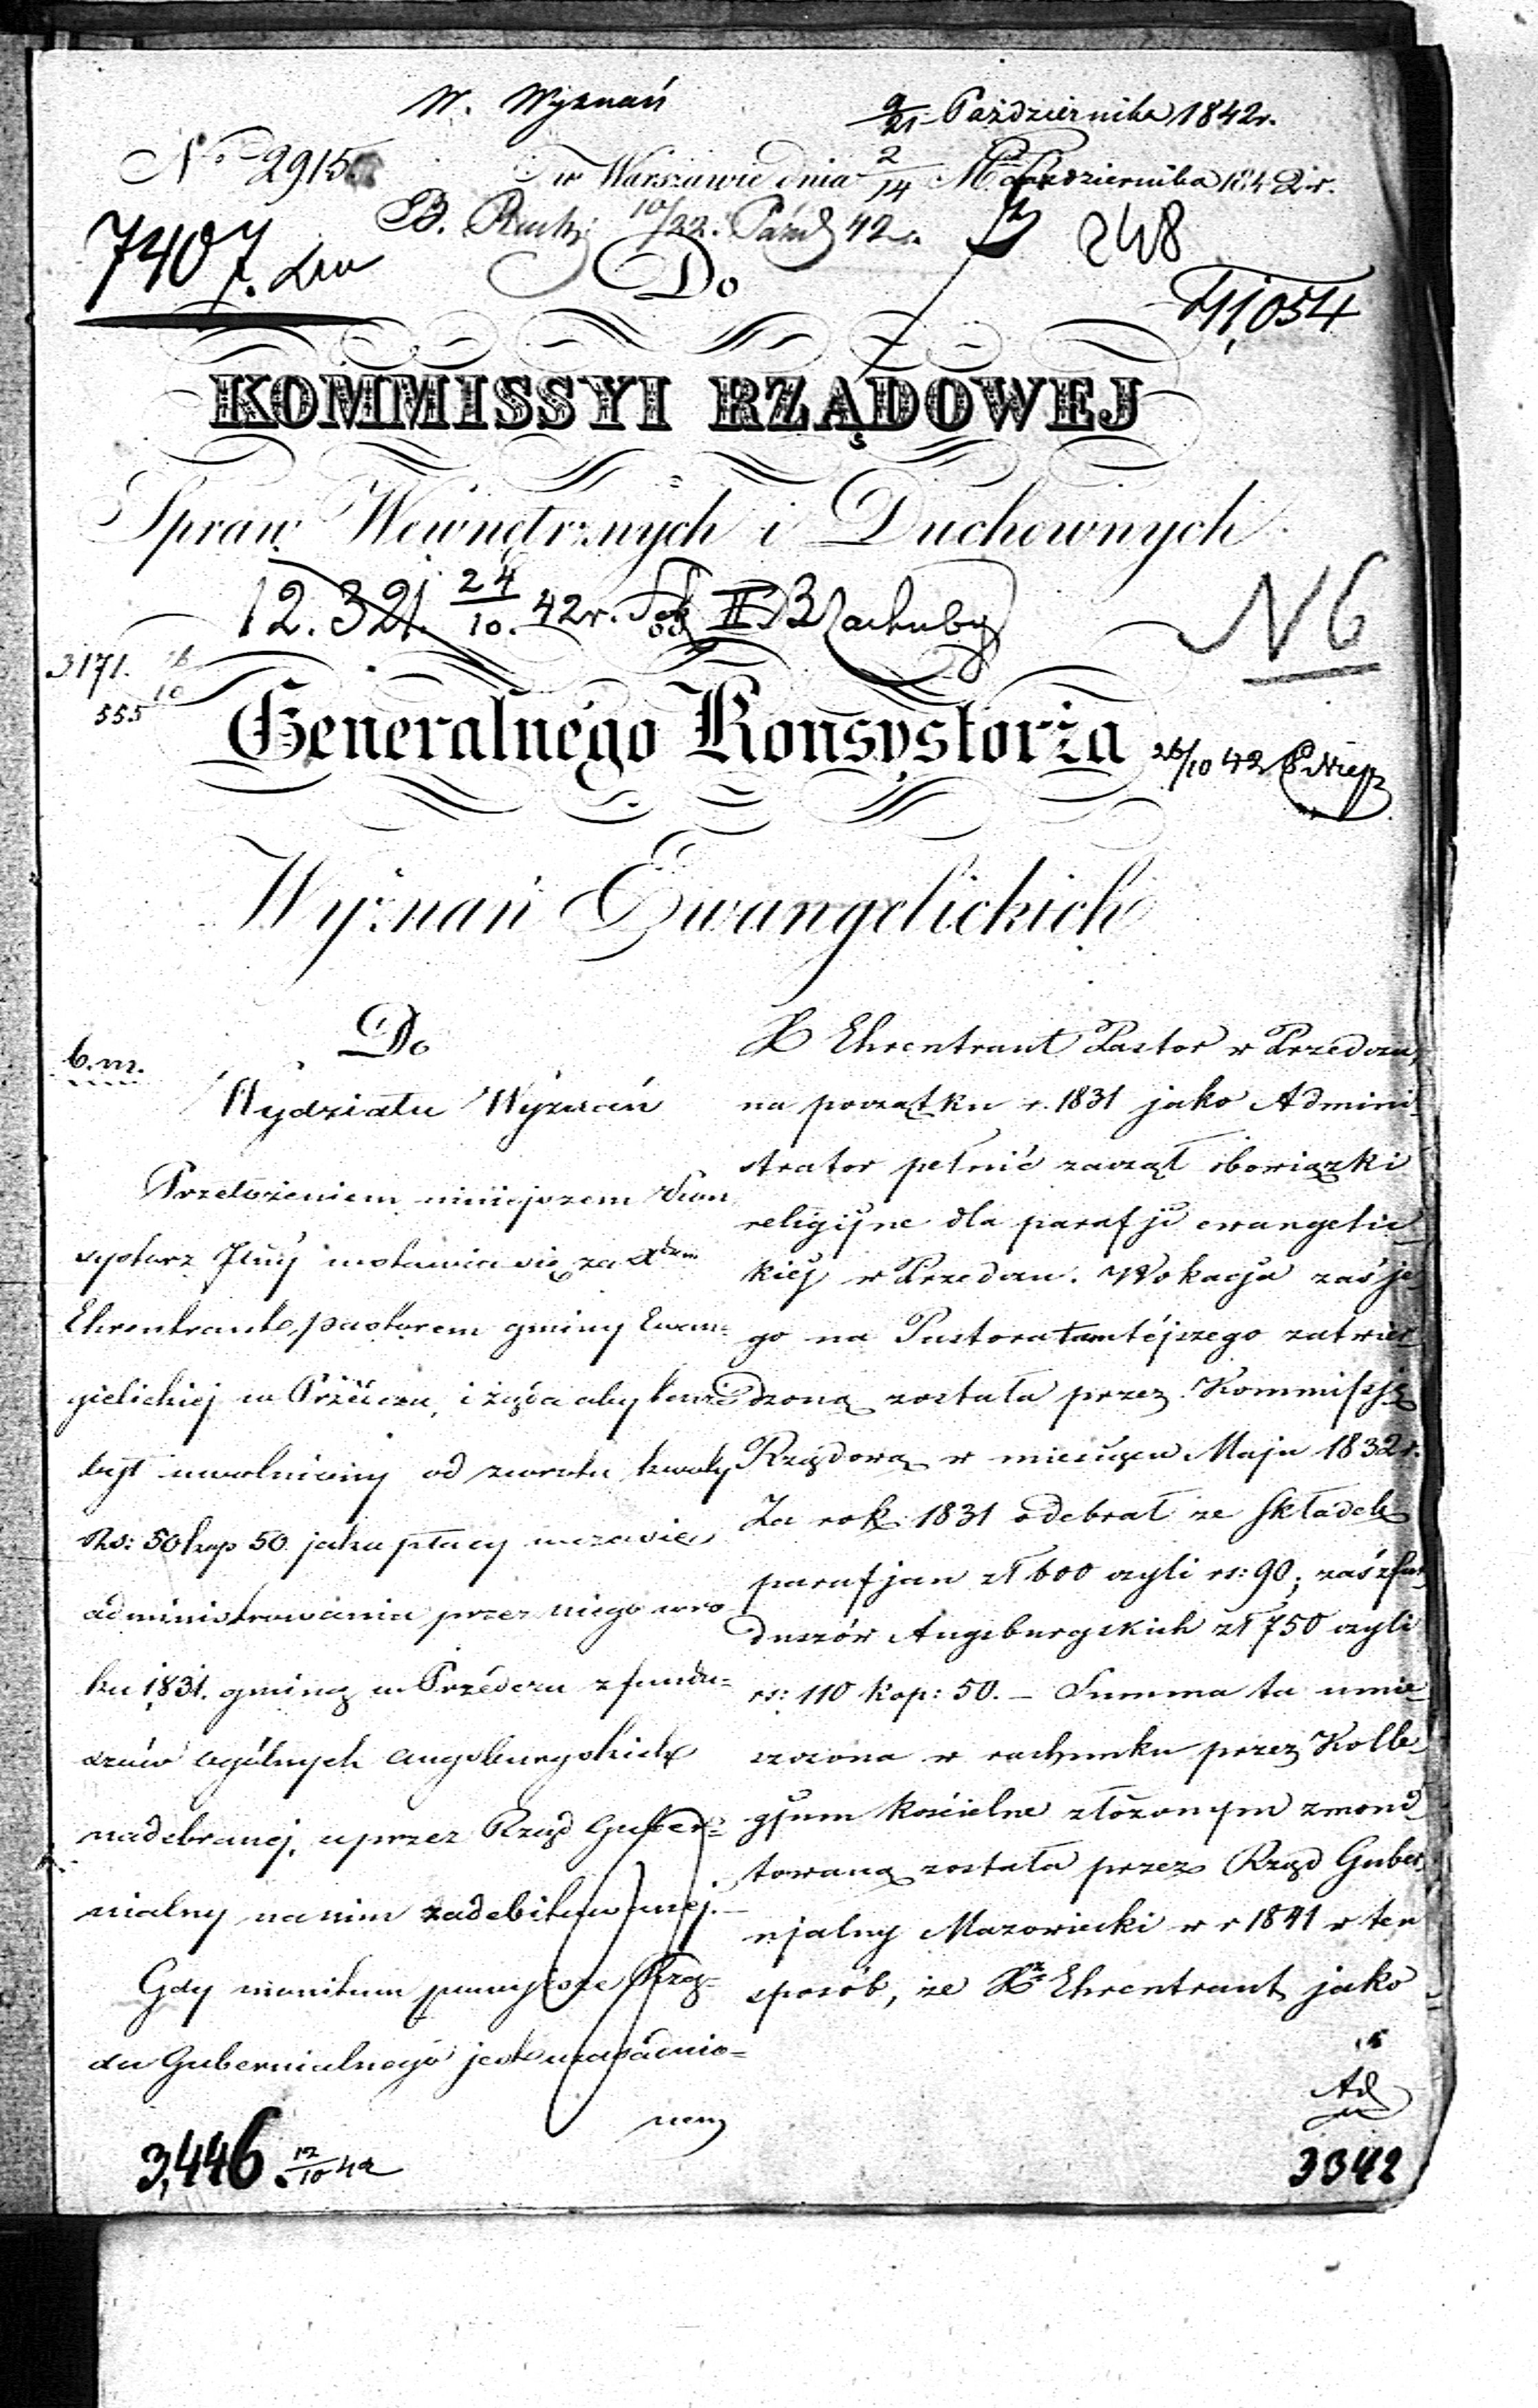 W. Wyznań
9/21 Października 1842 r.
No 2915
w Warszawie dnia 2/14 Października 1842 r.
B. Rach: 10/22. Paźd 42 r.
248
7407.
Do
11,054
KOMMISSYI RZĄDOWEJ
Spraw Wewnętrznych i Duchownych
12.321. 24/10. 42 r. Sek II B Rachuby
N 6
3171.
555
Generalnego Konsystorza
26/10 42
Wyznań Ewangelickich
b. m.
Do
Wydziału Wyznań
Przełożeniem niniejszem Kon
systorz Jlny wstawia się za Xdzem
Ehrentraut, pastorem gminy Ewan-
gielickiej w Przedczu, i żąda aby tenże
był uwolniony od zwrotu kwoty
Rs: 50 kop 50. jako płacy w czasie
administrowania przez niego w ro
ku 1831. gminą w Przedczu z fundu-
szów ogólnych augsburgskich
nadebranej, a przez Rząd Guber-
nialny na nim zadebitowanej.
Gdy monitum powyższe Rzą-
du Gubernialnego jest uzasadnio-
nem
3,446. 12/10 42
X Ehrentraut Pastor w Przedczu,
na początku r. 1831 jako Admini
strator pełnić zaczął obowiązki
religijne dla parafji ewangelic
kiej w Przedczu. Wokacja zaś je
go na Pastora tamtéjszego zatwier
dzoną została przez Kommissję
Rządową w miesiącu Maju 1832 r.
Za rok 1831 odebrał ze składek
parafjan zł 600 czyli rs: 90; zaś z fun
duszów Augsburgskich zł 750 czyli
rs: 110 kop: 50. — Summa ta umie
szczona w rachunku przez Kolle
gjum kościelne złożonym zmoni
towaną została przez Rząd Guber
njalny Mazowiecki w r 1841 w ten
sposób, że Xdz Ehrentraut jako
Ad
3342